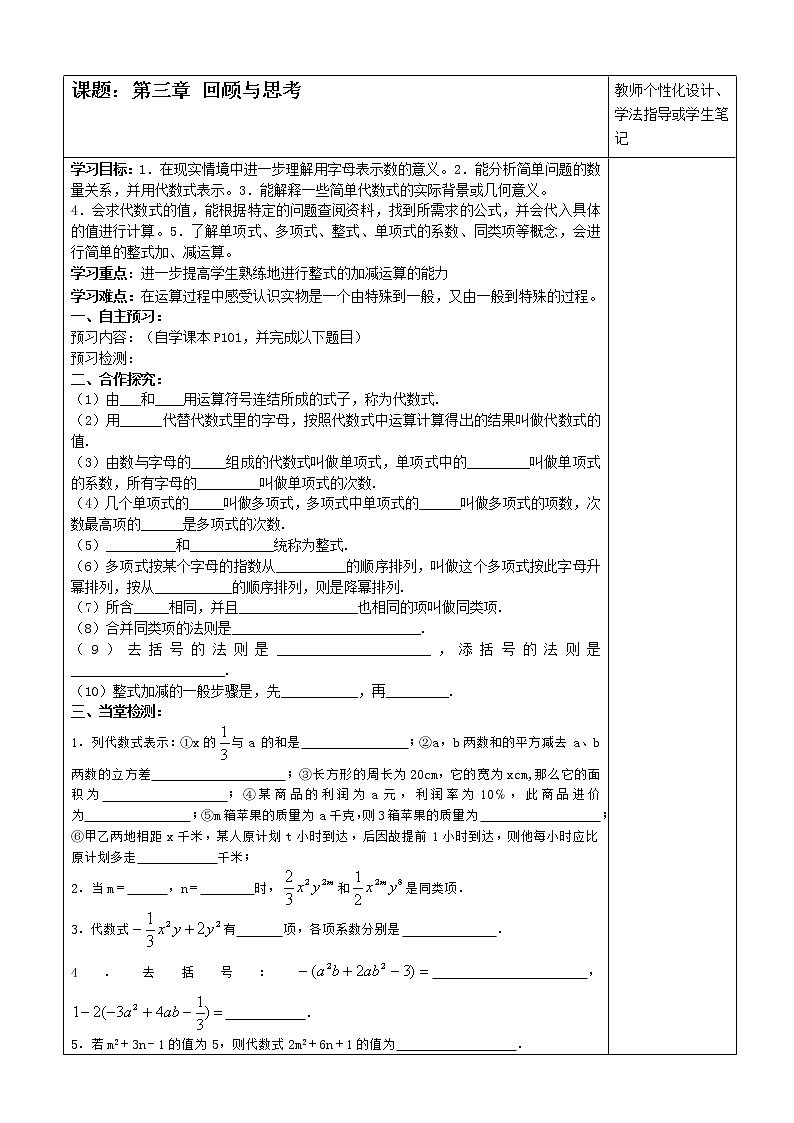 课题：第三章 回顾与思考
教师个性化设计、
学法指导或学生笔
记
学习目标：1．在现实情境中进一步理解用字母表示数的意义。2．能分析简单问题的数
量关系，并用代数式表示。3．能解释一些简单代数式的实际背景或几何意义。
4．会求代数式的值，能根据特定的问题查阅资料，找到所需求的公式，并会代入具体
的值进行计算。5．了解单项式、多项式、整式、单项式的系数、同类项等概念，会进
行简单的整式加、减运算。
学习重点：进一步提高学生熟练地进行整式的加减运算的能力
学习难点：在运算过程中感受认识实物是一个由特殊到一般，又由一般到特殊的过程。
一、自主预习：
预习内容：（自学课本P101，并完成以下题目）
预习检测：
二、合作探究：
（1）由___和____用运算符号连结所成的式子，称为代数式．
（2）用______代替代数式里的字母，按照代数式中运算计算得出的结果叫做代数式的
值．
（3）由数与字母的_____组成的代数式叫做单项式，单项式中的_________叫做单项式
的系数，所有字母的_________叫做单项式的次数．
（4）几个单项式的_____叫做多项式，多项式中单项式的______叫做多项式的项数，次
数最高项的______是多项式的次数．
（5）__________和____________统称为整式．
（6）多项式按某个字母的指数从__________的顺序排列，叫做这个多项式按此字母升
幂排列，按从___________的顺序排列，则是降幂排列．
（7）所含_____相同，并且_________________也相同的项叫做同类项．
（8）合并同类项的法则是___________________________．
（9）去括号的法则是______________________，添括号的法则是
______________________．
（10）整式加减的一般步骤是，先___________，再_________．
三、当堂检测：
1．列代数式表示：①x的1/3与a 的和是________________；②a，b两数和的平方减去 a、b
两数的立方差____________________；③长方形的周长为20cm，它的宽为xcm,那么它的面
积为___________________；④某商品的利润为a元，利润率为10％，此商品进价
为________________；⑤m箱苹果的质量为a千克,则3箱苹果的质量为__________________；
⑥甲乙两地相距x千米，某人原计划t小时到达，后因故提前1小时到达，则他每小时应比
原计划多走____________千米；
2．当m＝______，n＝________时，2/3 x²y²ᵐ 和 1/2 x²ᵐy⁸ 是同类项．
3．代数式 −1/3 x²y+2y² 有_______项，各项系数分别是______________．
4．去括号：−(a²b+2ab²−3)=_______________________，
1−2(−3a²+4ab−1/3)=____________．
5．若m²＋3n－1的值为5，则代数式2m²＋6n＋1的值为__________________．